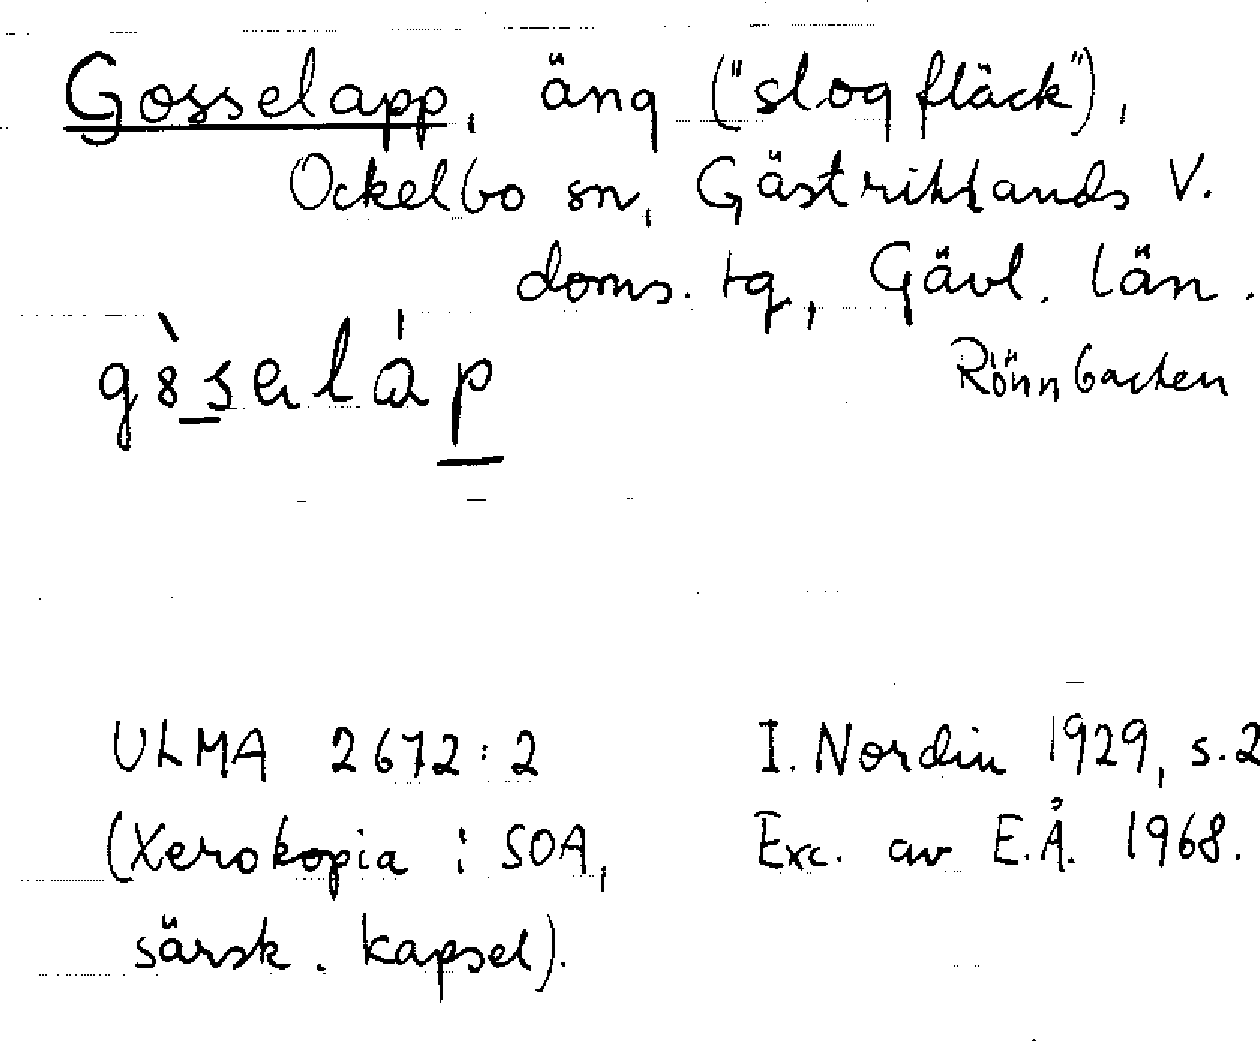 Gosselapp, äng ("slogfläck"),
Ockelbo sn, Gästriklands V.
doms. tg, Gävl. län.
Rönnbacken
ULMA 2672:2
I. Nordin 1929, s. 2
(Xerokopia i SOA,
Exc. av E.Å. 1968.
särsk. kapsel).